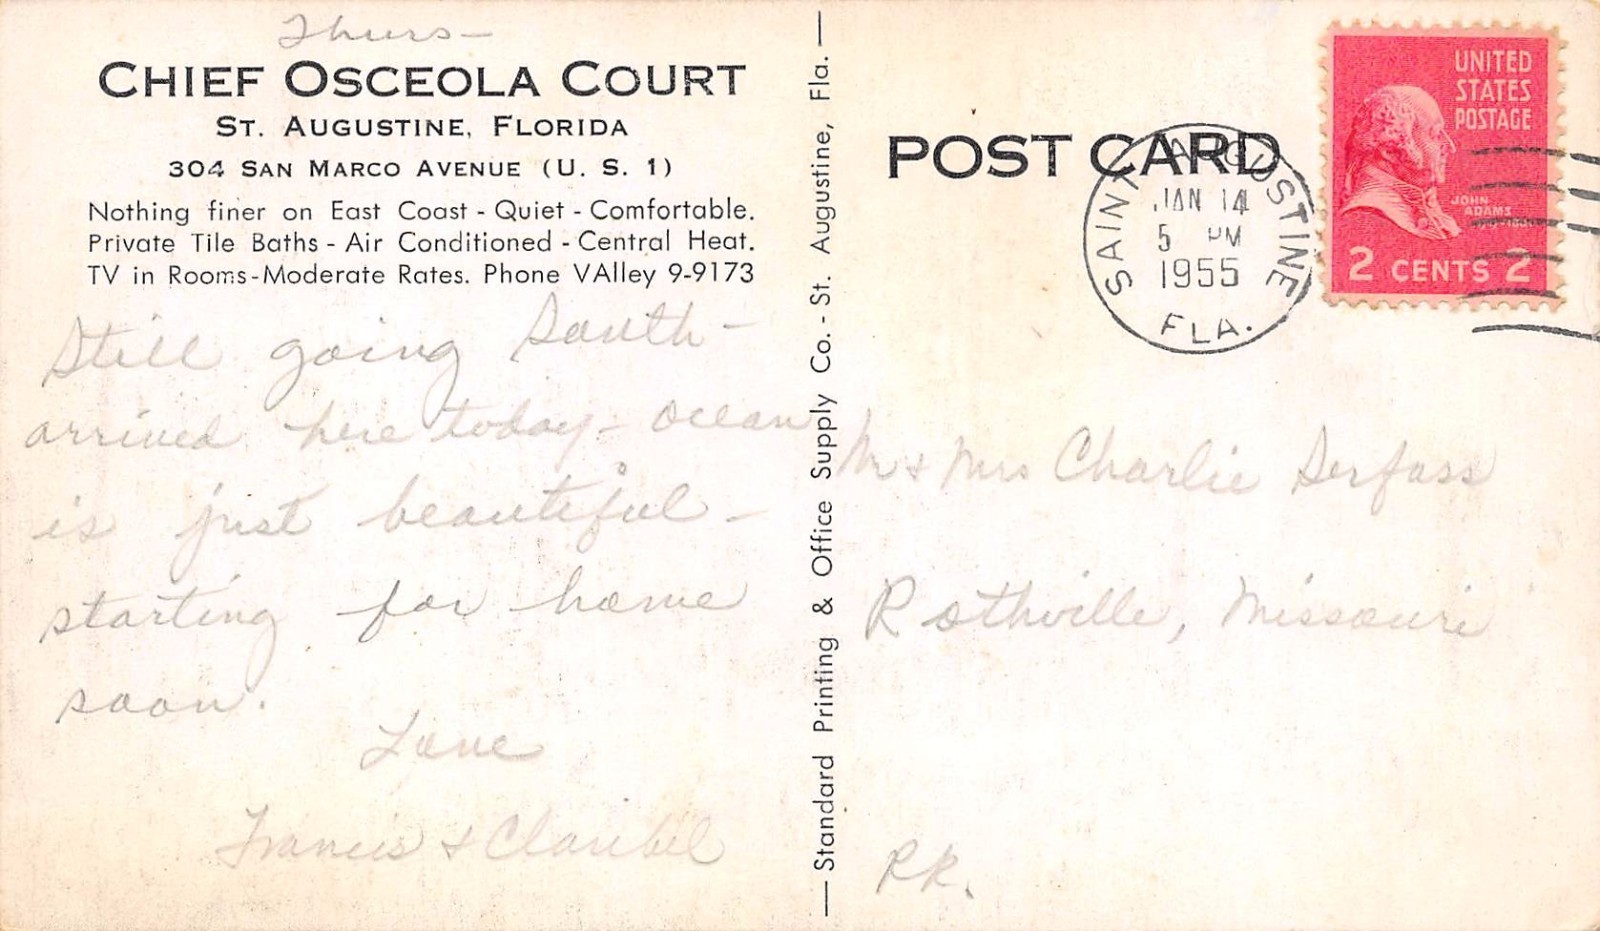 Thurs-
CHIEF OSCEOLA COURT
ST. AUGUSTINE, FLORIDA
304 SAN MARCO AVENUE (U. S. 1)
Nothing finer on East Coast - Quiet - Comfortable.
Private Tile Baths - Air Conditioned - Central Heat.
TV in Rooms-Moderate Rates. Phone VAlley 9-9173
Still going South -
arrived here today - ocean
is just beautiful -
starting for home
soon.
Love
Francis & Claribel
— Standard Printing & Office Supply Co. - St. Augustine, Fla. —
POST CARD
SAINT AUGUSTINE
JAN 14
5 PM
1955
FLA.
UNITED
STATES
POSTAGE
JOHN
ADAMS
2 CENTS 2
Mr & Mrs Charlie Derfass
Rothville, Missouri
RR.